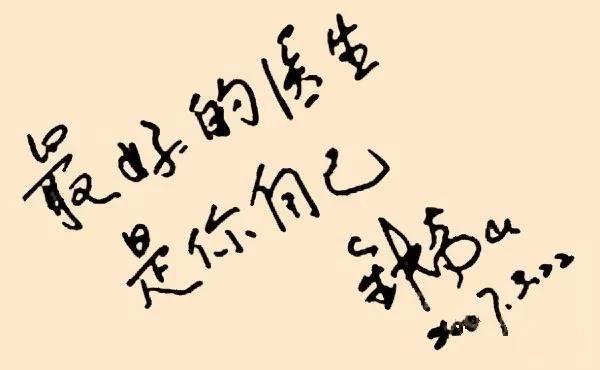 最好的医生
是你自己
钟南山
2007.3.22